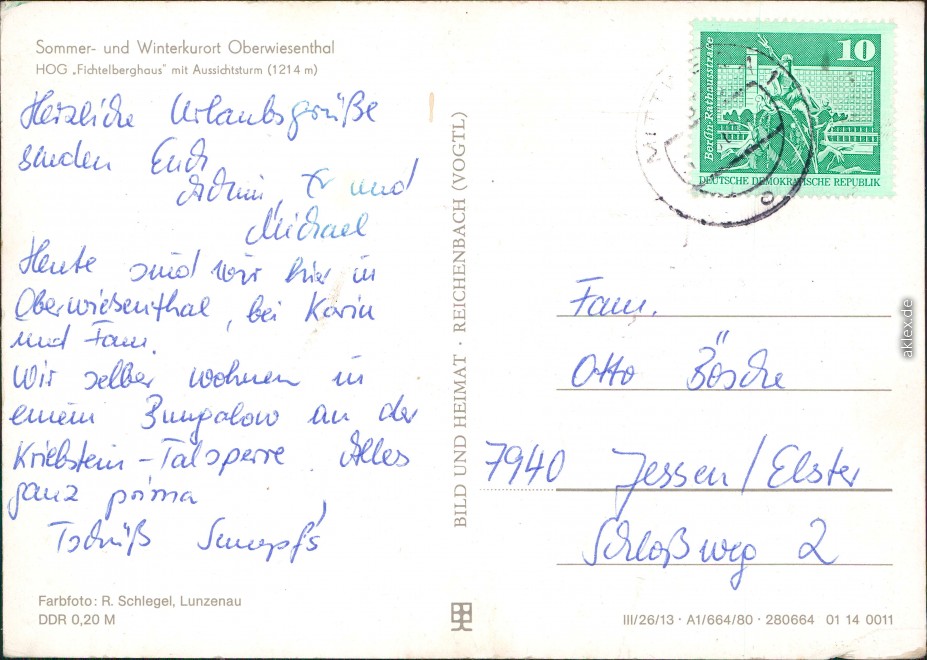 Sommer- und Winterkurort Oberwiesenthal
HOG „Fichtelberghaus“ mit Aussichtsturm (1214 m)
Herzliche Urlaubsgrüße
senden Euch
und
Michael
Heute sind wir hier in
Oberwiesenthal, bei Karin
und Fam.
Wir selber wohnen in
einem Bungalow an der
Kriebstein-Talsperre Alles
ganz prima
Tschüß
Farbfoto: R. Schlegel, Lunzenau
DDR 0,20 M
BILD UND HEIMAT · REICHENBACH (VOGTL)
10
Berlin Rathausstrasse
DEUTSCHE DEMOKRATISCHE REPUBLIK
Fam.
Otto Bösche
7940 Jessen/Elster
Schloßweg 2
III/26/13 · A1/664/80 · 280664 01 14 0011
aklex.de